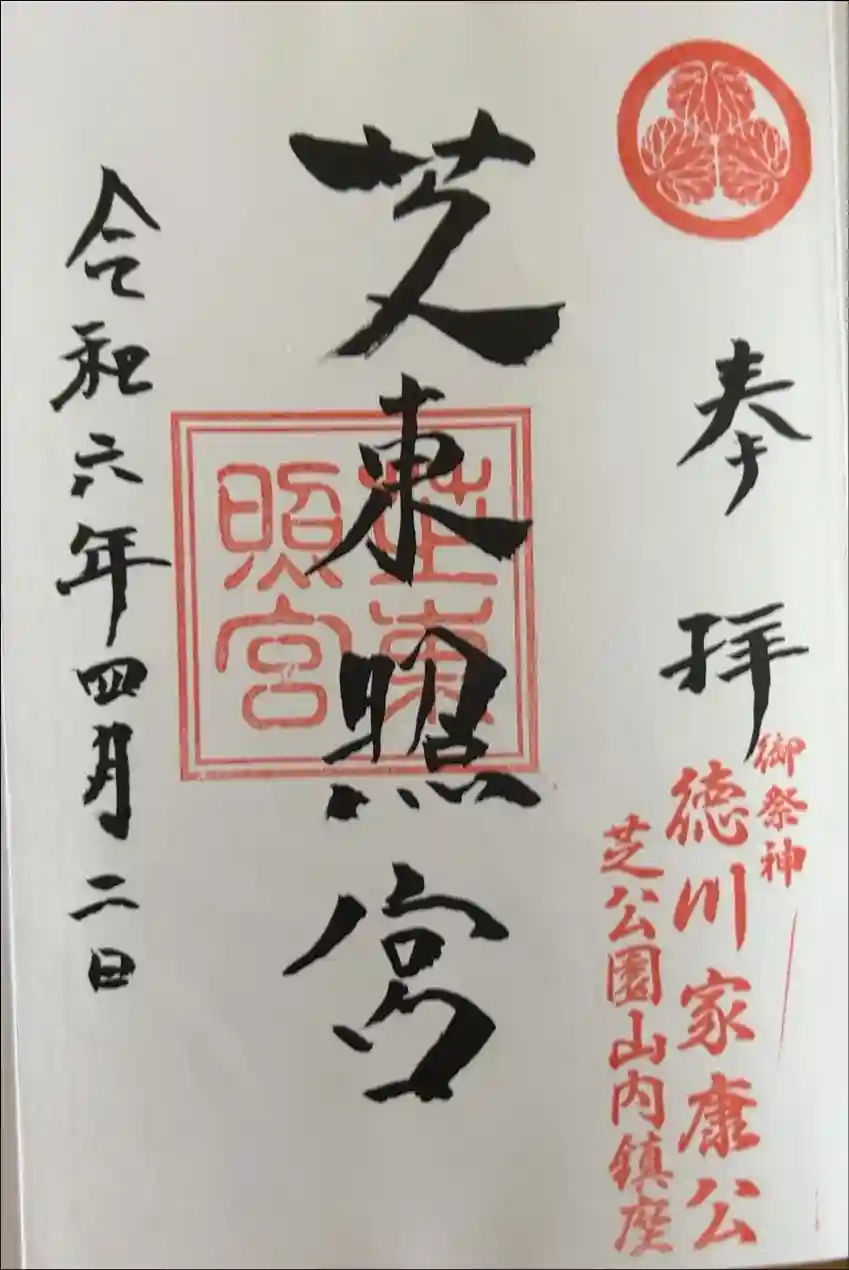 奉拝
御祭神
徳川家康公
芝公園山内鎮座
芝東照宮
芝東
照宮
令和六年四月二日